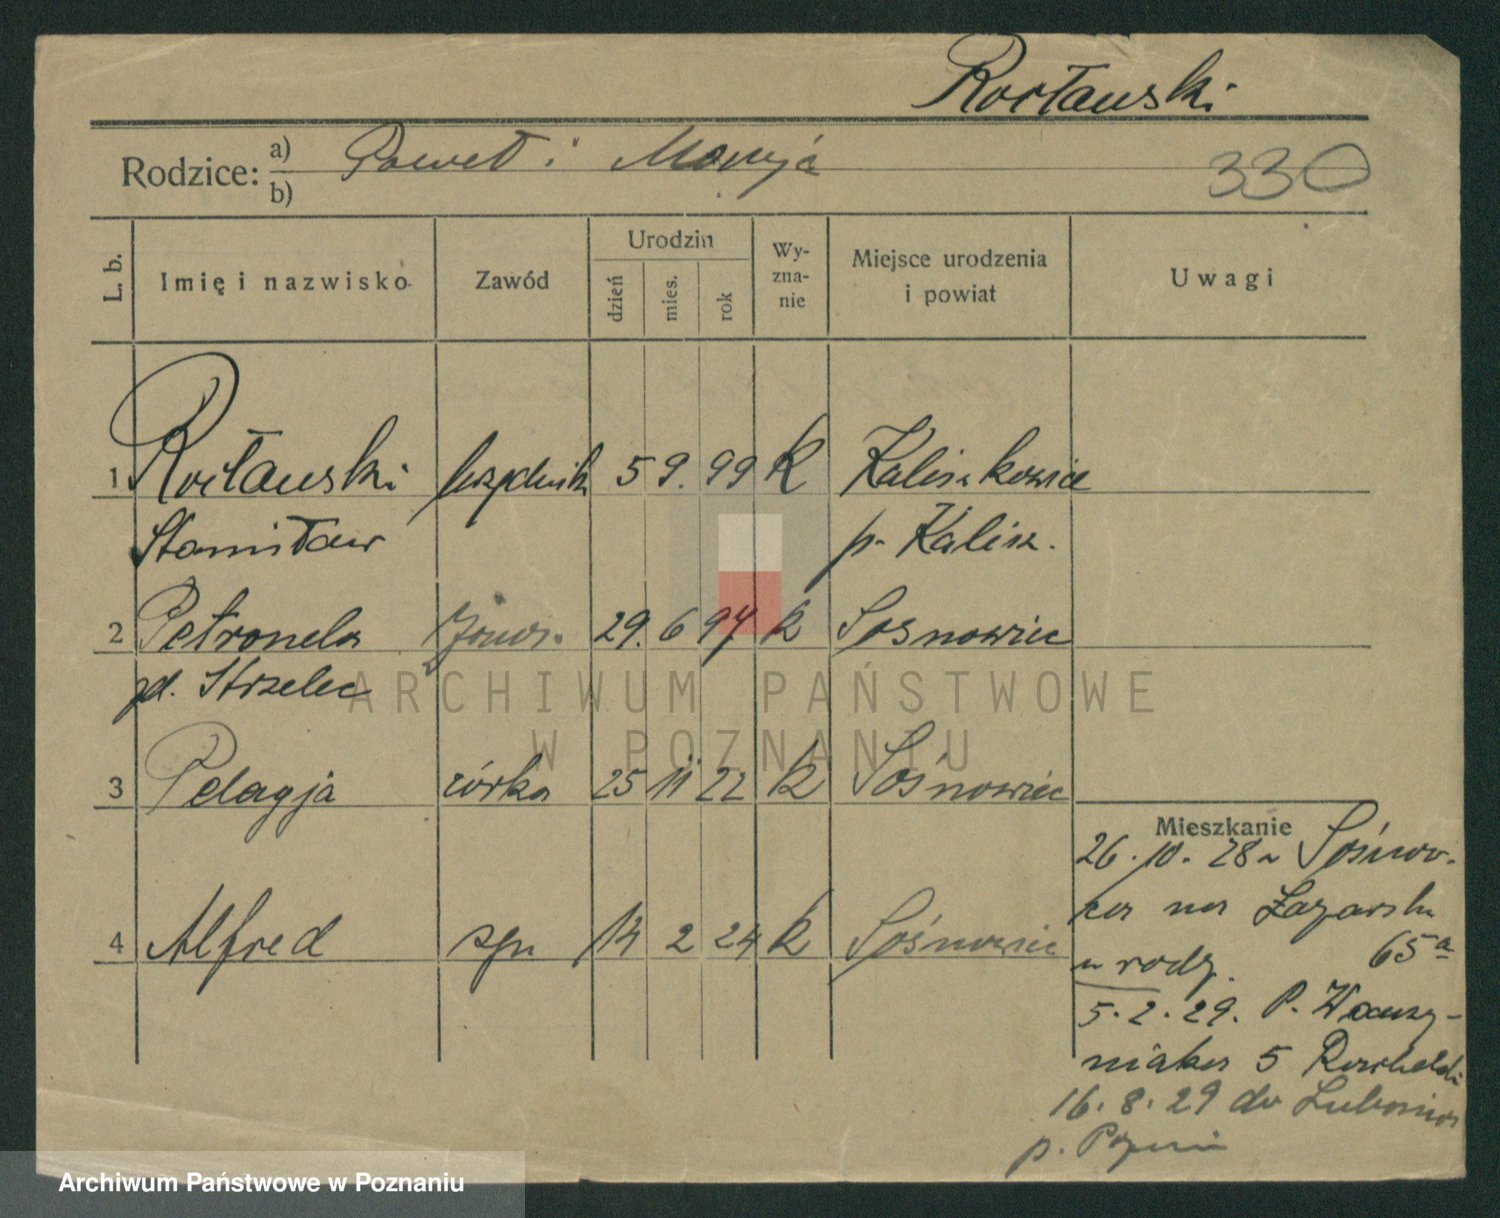 Rorławski
Rodzice: a) Paweł i Marja
b)
330
L. b.
Imię i nazwisko
Zawód
Urodzin
dzień
mies.
rok
Wy-
zna-
nie
Miejsce urodzenia
i powiat
Uwagi
1 Rorławski 5 9. 99 k Kaliszkowice
Stanisław p. Kalisz.
2 Petronela żona. 29. 6 97 k Sosnowiec
zd. Strzelec
3 Pelagja córka 25 11 22 k Sośnowiec
4 Alfred syn 14 2 24 k Sośnowiec
Mieszkanie
26.10.28 z Sosnow-
ca na Łazarska
u rodz. 65a
5.2.29. P. Wawrzy-
niaka 5
16.8.29 do Lubonia
p. Poznań
ARCHIWUM PAŃSTWOWE
W POZNANIU
Archiwum Państwowe w Poznaniu